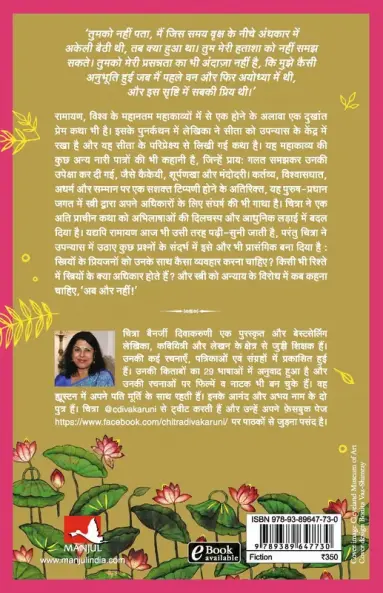 'तुमको नहीं पता, मैं जिस समय वृक्ष के नीचे अंधकार में
अकेली बैठी थी, तब क्या हुआ था। तुम मेरी हताशा को नहीं समझ
सकते। तुमको मेरी प्रसन्नता का भी अंदाज़ा नहीं है, कि मुझे कैसी
अनुभूति हुई जब मैं पहले वन और फिर अयोध्या में थी,
और इस सृष्टि में सबकी प्रिय थी।'
रामायण, विश्व के महानतम महाकाव्यों में से एक होने के अलावा एक दुखांत
प्रेम कथा भी है। इसके पुनर्कथन में लेखिका ने सीता को उपन्यास के केंद्र में
रखा है और यह सीता के परिप्रेक्ष्य से लिखी गई कथा है। यह महाकाव्य की
कुछ अन्य नारी पात्रों की भी कहानी है, जिन्हें प्रायः गलत समझकर उनकी
उपेक्षा कर दी गई, जैसे कैकेयी, शूर्पणखा और मंदोदरी। कर्तव्य, विश्वासघात,
अधर्म और सम्मान पर एक सशक्त टिप्पणी होने के अतिरिक्त, वह पुरुष-प्रधान
जगत में स्त्री द्वारा अपने अधिकारों के लिए संघर्ष की भी गाथा है। चित्रा ने एक
अति प्राचीन कथा को अभिलाषाओं की दिलचस्प और आधुनिक लड़ाई में बदल
दिया है। यद्यपि रामायण आज भी उसी तरह पढ़ी-सुनी जाती है, परंतु चित्रा ने
उपन्यास में उठाए कुछ प्रश्नों के संदर्भ में इसे और भी प्रासंगिक बना दिया है :
स्त्रियों के प्रियजनों को उनके साथ कैसा व्यवहार करना चाहिए? किसी भी रिश्ते
में स्त्रियों के क्या अधिकार होते हैं? और स्त्री को अन्याय के विरोध में कब कहना
चाहिए, 'अब और नहीं!'
चित्रा बैनर्जी दिवाकरुणी एक पुरस्कृत और बेस्टसेलिंग
लेखिका, कवियित्री और लेखन के क्षेत्र से जुड़ी शिक्षक हैं।
उनकी कई रचनाएँ, पत्रिकाओं एवं संग्रहों में प्रकाशित हुई
हैं। उनकी किताबों का 29 भाषाओं में अनुवाद हुआ है और
उनकी रचनाओं पर फ़िल्में व नाटक भी बन चुके हैं। वह
ह्यूस्टन में अपने पति मूर्ति के साथ रहती हैं। इनके आनंद और अभय नाम के दो
पुत्र हैं। चित्रा @cdivakaruni से ट्वीट करती हैं और उन्हें अपने फ़ेसबुक पेज
https://www.facebook.com/chitradivakaruni पर पाठकों से जुड़ना पसंद है।
MANJUL
www.manjulindia.com
eBook
available
ISBN 978-93-89647-73-0
9 789389 647730
Fiction ₹350
Cover image: Cleveland Museum of Art
Cover design: Bonita Vaz-Shimray